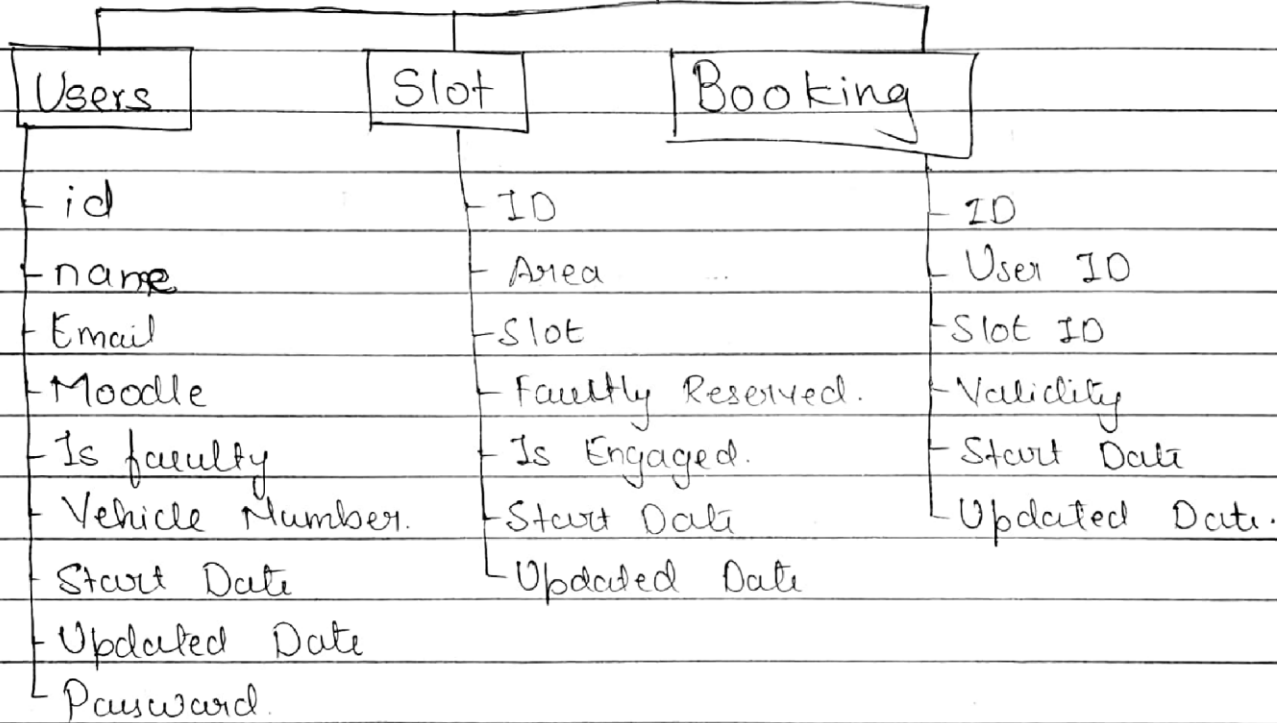 Users
id
name
Email
Moodle
Is faculty
Vehicle Number.
Start Date
Updated Date
Password.
Slot
ID
Area
Slot
Faultly Reserved.
Is Engaged.
Start Date
Updated Date
Booking
ID
User ID
Slot ID
Validity
Start Date
Updated Date.